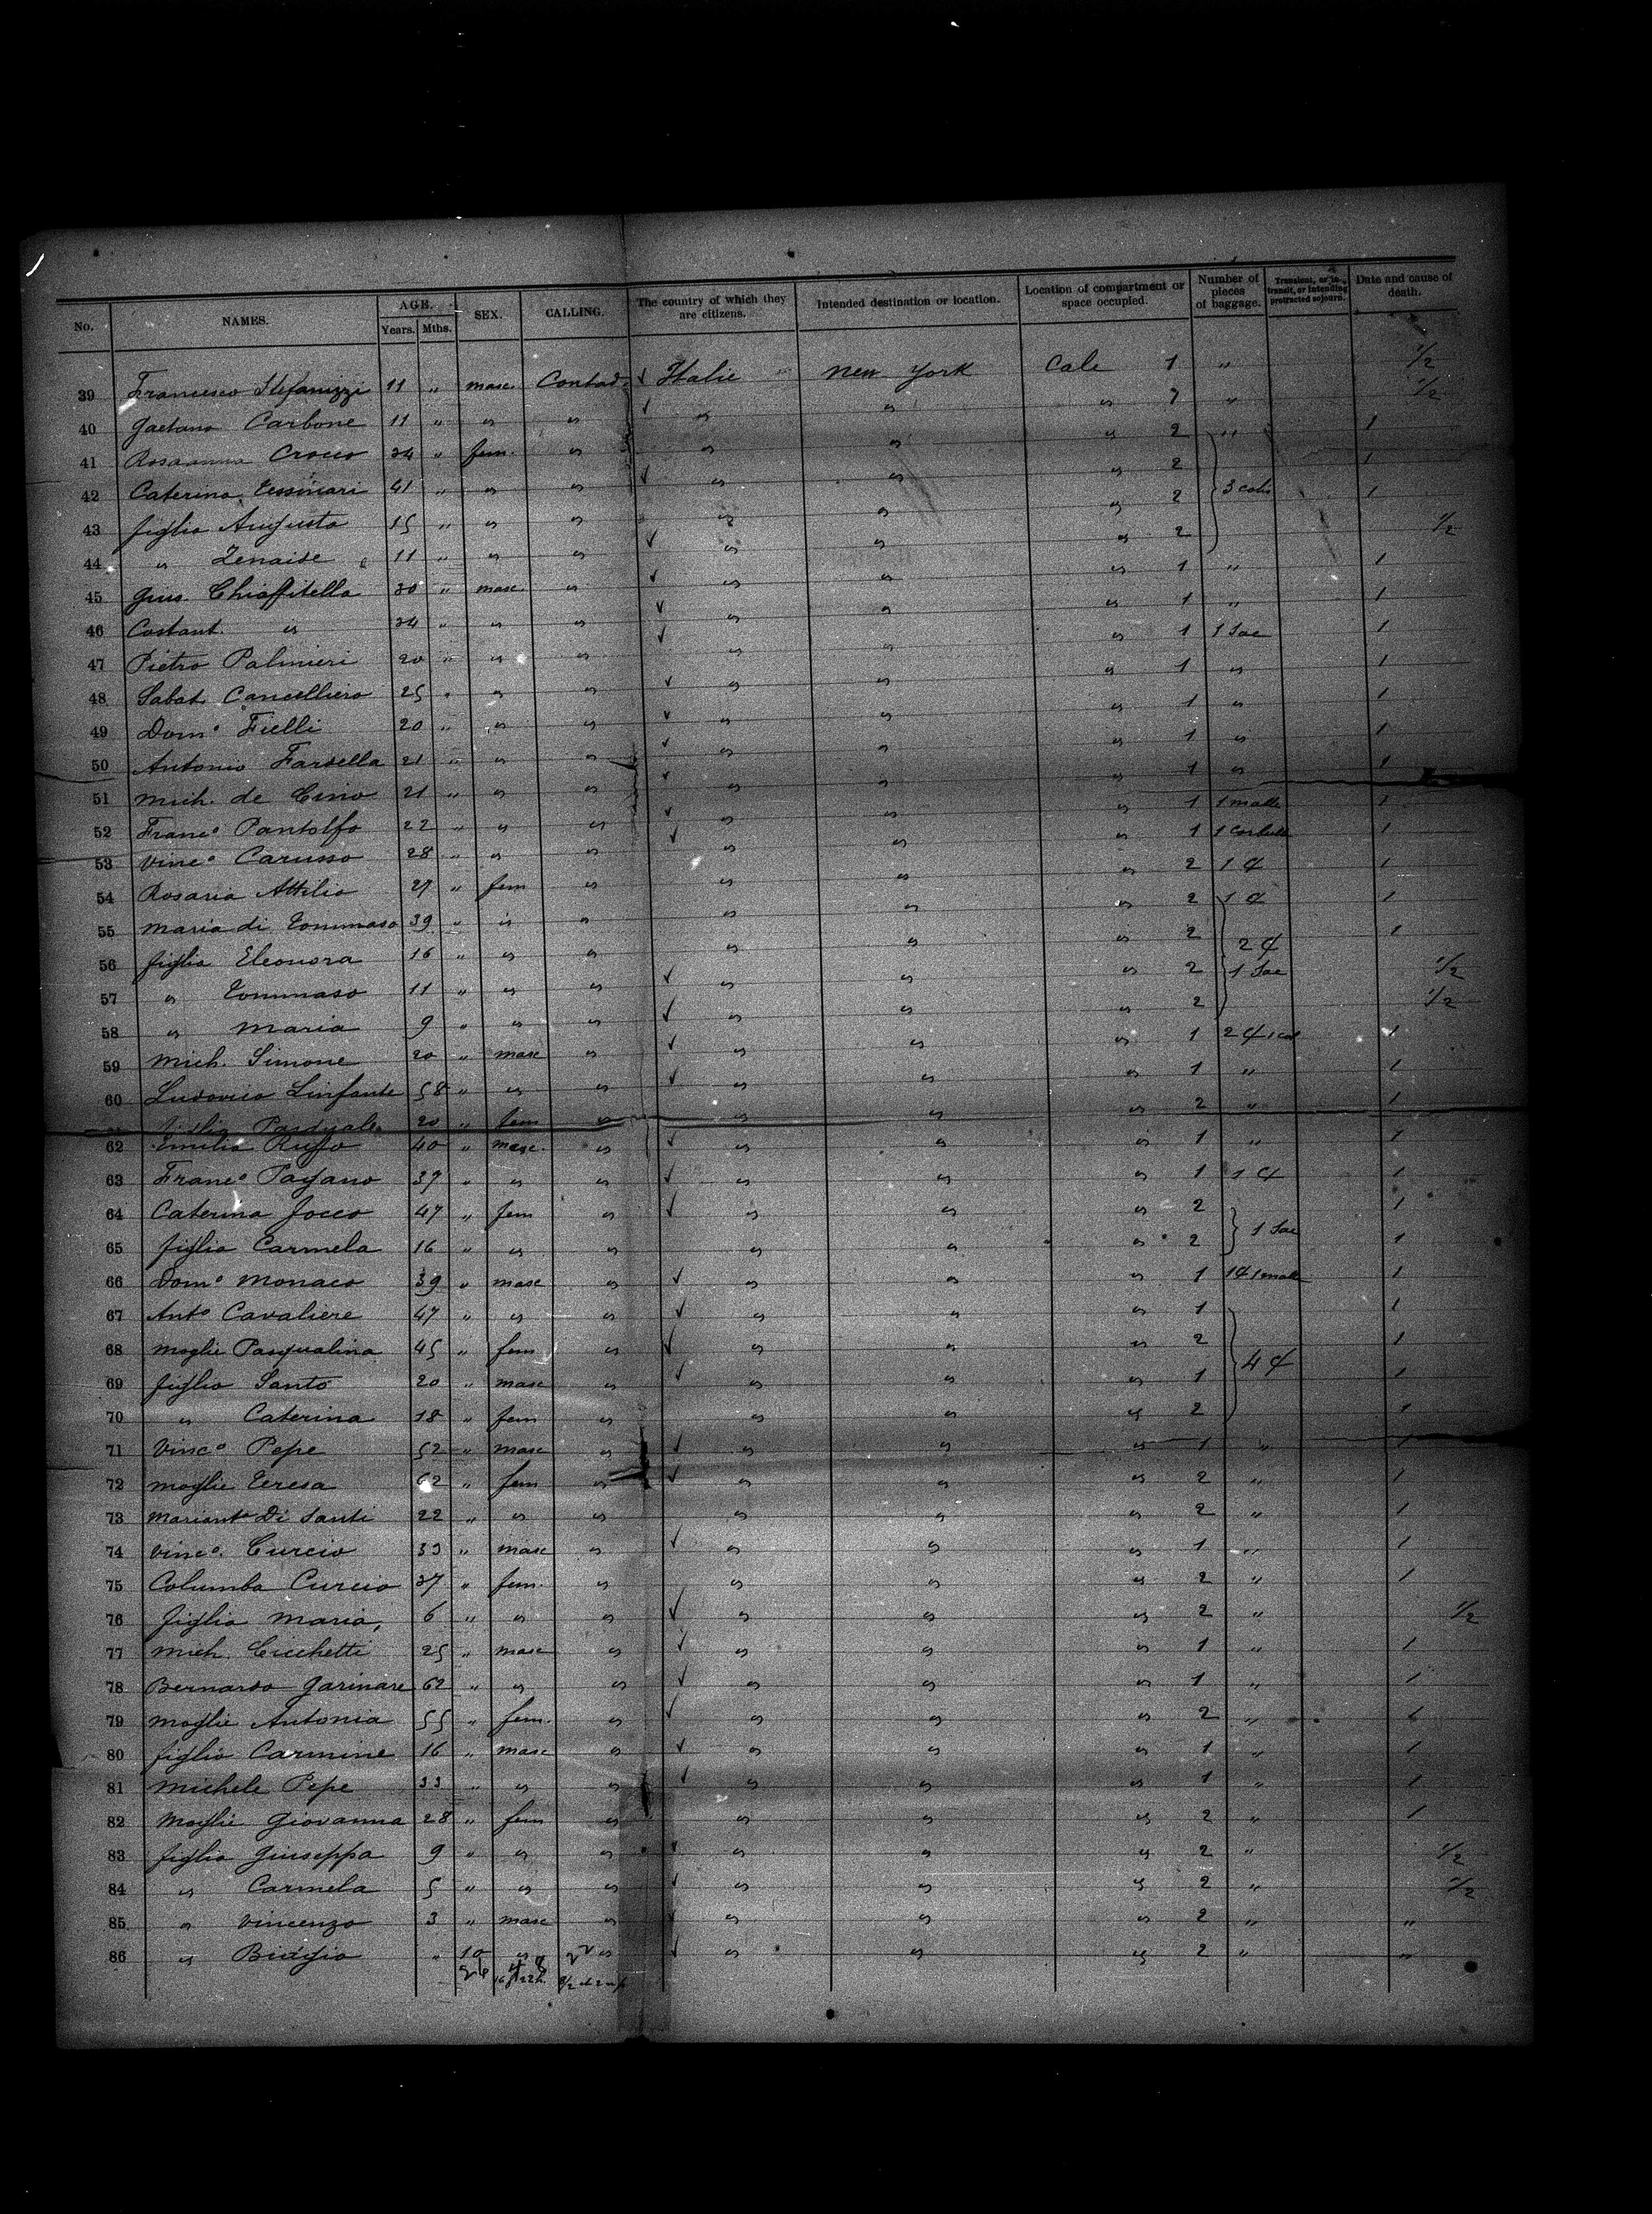 No. NAMES. AGE. Years. Mths. SEX. CALLING. The country of which they are citizens. Intended destination or location. Location of compartment or space occupied. Number of pieces of baggage. Transient, or in transit, or intending protracted sojourn. Date and cause of death.
39 Francesco Stefanizzi 11 " masc. Contad. ✓ Italie " New York Cale 1 " 1/2
40 Gaetano Carbone 11 " " " ✓ " " " "  1/2
41 Rosaanna Crocco 34 " fem. " " " " 2 " 1
42 Caterina 41 " " " ✓ " " " 2 3 colis 1
43 figlia Augusta 15 " " " " " " 2 1
44 " Zenaide 11 " " " ✓ " " " 2 1/2
45 Gius. Chiaffitella 30 " masc. " ✓ " " " 1 " 1
46 Costant. " 34 " " " ✓ " " " 1 " 1
47 Pietro Palmieri 20 " " " ✓ " " " 1 1 Sac 1
48 Sabat. Cancelliero 25 " " " ✓ " " " 1 " 1
49 Domo Fielli 20 " " " ✓ " " " 1 " 1
50 Antonio Farsella 21 " " " ✓ " " " 1 " 1
51 Mich. de Cesio 21 " " " ✓ " " " 1 " 1
52 Franco Pantolfo 22 " " " ✓ " " " 1 1 malle 1
53 Vinco Carusso 28 " " " ✓ " " " 1 1 1
54 Rosaria Attilio 27 " fem " " " " 2 1 1
55 Maria di Tommaso 39 " " " " " " 2 1 1
56 figlia Eleonora 16 " " " " " " 2 2 1
57 " Tommaso 11 " " " ✓ " " " 2 1 Sac 1/2
58 " Maria 9 " " " ✓ " " " 2 1/2
59 Mich. Simone 20 " masc " ✓ " " " 1 2 1
60 Ludovico Linfante 58 " " " ✓ " " " 1 " 1
figlia Pasquale 20 " fem " " " " 2 " 1
62 Emilio Ruffo 40 " masc. " ✓ " " " 1 " 1
63 Franco Pagano 37 " " " ✓ " " " 1 1 1
64 Caterina Jocco 47 " fem " ✓ " " " 2 1
65 figlia Carmela 16 " " " " " " 2 1 Sac 1
66 Domo Monaco 39 " masc " ✓ " " " 1 1 1 malle 1
67 Anto Cavaliere 47 " " " ✓ " " " 1 1
68 moglie Pasqualina 45 " fem " ✓ " " " 2 1
69 figlio Santo 20 " masc " ✓ " " " 1 4 1
70 " Caterina 18 " fem " " " " 2 1
71 Vinco Pepe 52 " masc " ✓ " " " 1 " 1
72 moglie Teresa 62 " fem " ✓ " " " 2 " 1
73 Marianta Di Santi 22 " " " " " " 2 " 1
74 Vinco. Curcio 33 " masc " ✓ " " " 1 " 1
75 Columba Curcio 37 " fem. " " " " 2 " 1
76 figlia Maria, 6 " " " ✓ " " " 2 " 1/2
77 Mich. Cicchetti 25 " masc " ✓ " " " 1 " 1
78 Bernardo Garinare 62 " " " ✓ " " " 1 " 1
79 moglie Antonia 55 " fem. " ✓ " " " 2 " 1
80 figlio Carmine 16 " masc " ✓ " " " 1 " 1
81 Michele Pepe 33 " " " ✓ " " " 1 " 1
82 Moglie Giovanna 28 " fem " " " " 2 " 1
83 figlia Giuseppa 9 " " " ✓ " " " 2 " 1/2
84 " Carmela 5 " " " ✓ " " " 2 " 1/2
85 " Vincenzo 3 " masc " ✓ " " " 2 " "
86 " Biaggio " 10 " " ✓ " " " 2 " "